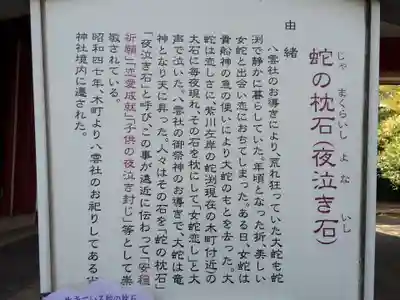 蛇の枕石(夜泣き石)
じゃ まくらいし よ な いし
由緒
八雲社のお導きにより、荒れ狂っていた大蛇も蛇
渕で静かに暮らしていた。年頃となった折、美しい
女蛇と出会い恋におちてしまった。ある日、女蛇は
貴船神の急の使いにより大蛇のもとを去った。大
蛇は恋しさに、紫川左岸の蛇渕現在の木町付近の
大石に毎夜現れ、その石を枕にして「女蛇恋し」と大
声で泣いた。八雲社の御祭神のお導きで、大蛇は竜
神となり天に昇った。人々はその石を「蛇の枕石」
「夜泣き石」と呼び、この事が遠近に伝わって「安穏
祈願」「恋愛成就」「子供の夜泣き封じ」等として崇
敬されている。
昭和四七年、木町より八雲社のお祀りしてある当
神社境内に遷された。